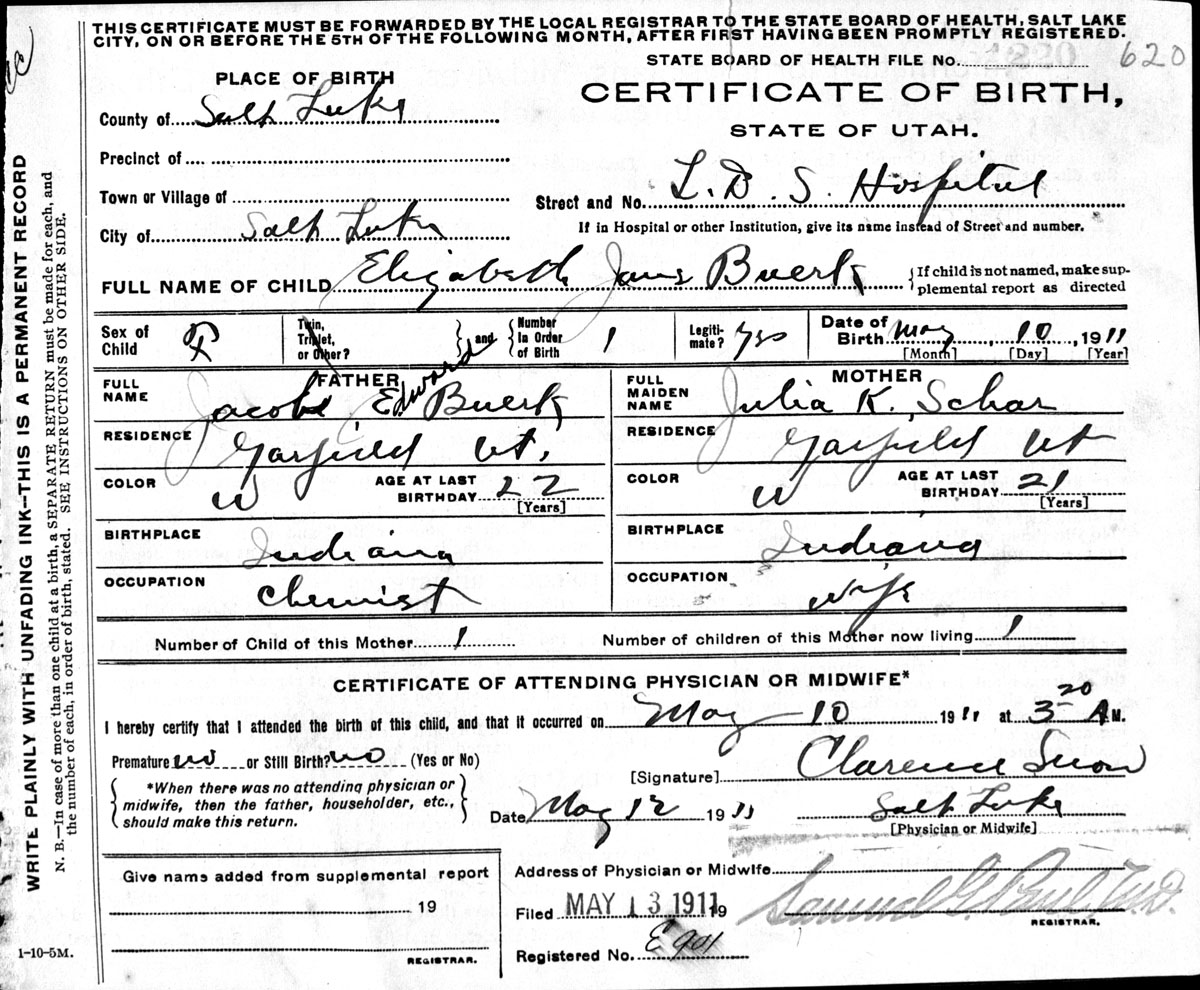 THIS CERTIFICATE MUST BE FORWARDED BY THE LOCAL REGISTRAR TO THE STATE BOARD OF HEALTH, SALT LAKE
CITY, ON OR BEFORE THE 5TH OF THE FOLLOWING MONTH, AFTER FIRST HAVING BEEN PROMPTLY REGISTERED.
STATE BOARD OF HEALTH FILE No. 620
PLACE OF BIRTH
CERTIFICATE OF BIRTH,
STATE OF UTAH.
County of Salt Lake
Precinct of
Town or Village of
Street and No. L. D. S. Hospital
City of Salt Lake
If in Hospital or other Institution, give its name instead of Street and number.
FULL NAME OF CHILD Elizabeth Jane Buerk
{If child is not named, make sup-
plemental report as directed
Sex of Child F
Twin, Triplet, or Other? } and { Number In Order of Birth 1
Legiti-mate? yes
Date of Birth May 10, 1911
[Month] [Day] [Year]
FATHER
FULL NAME Jacob Edward Buerk
RESIDENCE Garfield Ut.
COLOR W AGE AT LAST BIRTHDAY 22
[Years]
BIRTHPLACE Indiana
OCCUPATION Chemist
MOTHER
FULL MAIDEN NAME Julia K. Schar
RESIDENCE Garfield Ut
COLOR W AGE AT LAST BIRTHDAY 21
[Years]
BIRTHPLACE Indiana
OCCUPATION wife
Number of Child of this Mother 1 Number of children of this Mother now living 1
CERTIFICATE OF ATTENDING PHYSICIAN OR MIDWIFE*
I hereby certify that I attended the birth of this child, and that it occurred on May 10 1911 at 3 20 A M.
Premature no or Still Birth? no (Yes or No)
[Signature] Clarence Snow
{*When there was no attending physician or
midwife, then the father, householder, etc.,
should make this return.}
Date May 12 1911
Salt Lake
[Physician or Midwife]
Give name added from supplemental report
19
REGISTRAR.
Address of Physician or Midwife
Filed MAY 13 1911 19
Samuel G. Paul, M.D.
REGISTRAR.
Registered No. E 901
1-10-5M.
WRITE PLAINLY WITH UNFADING INK—THIS IS A PERMANENT RECORD
N. B.—In case of more than one child at a birth, a SEPARATE RETURN must be made for each, and
the number of each, in order of birth, stated. SEE INSTRUCTIONS ON OTHER SIDE.